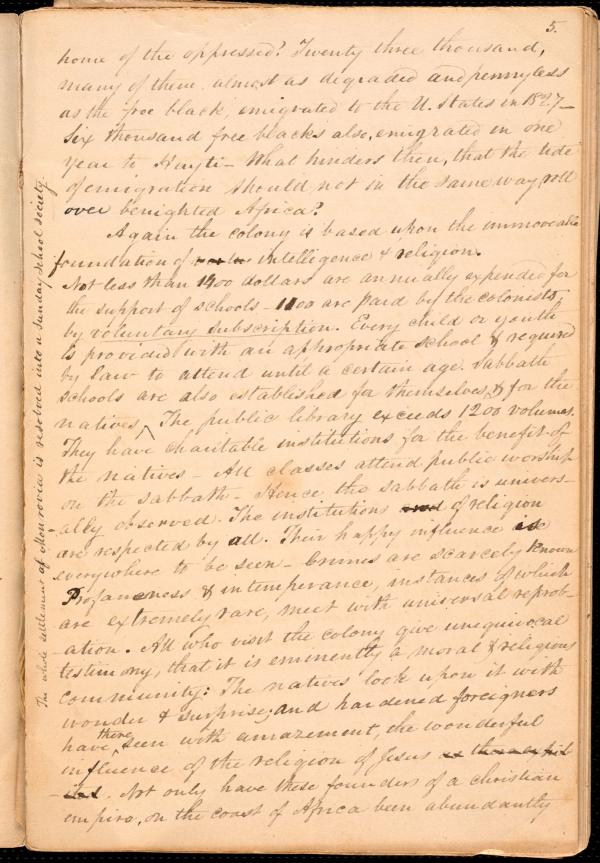 5.
home of the oppressed? Twenty three thousand,
many of them almost as degraded and pennyless
as the free black, emigrated to the U. States in 1827 —
Six thousand free blacks also, emigrated in one
year to Hayti — What hinders then, that the tide
of emigration should not in the same way roll
over benighted Africa?
Again the colony is based upon the immoveable
foundation of intelligence & religion.
Not less than 1400 dollars are annually expended for
the support of schools — 1100 are paid by the colonists,
by voluntary subscription. Every child or youth
is provided with an appropriate school & required
by law to attend until a certain age. Sabbath
schools are also established for themselves, & for the
natives ^ The public library exceeds 1200 volumes.
They have charitable institutions for the benefit of
the natives — All classes attend public worship
on the sabbath — Hence the sabbath is univers-
ally observed. The institutions of religion
are respected by all. Their happy influence
everywhere to be seen — Crimes are scarcely known
Profaneness & intemperance, instances of which
are extremely rare, meet with universal reprob-
-ation. All who visit the colony give unequivocal
testimony, that it is eminently a moral & religious
community: The natives look upon it with
wonder & surprise; and hardened foreigners
have ^there seen with amazement, the wonderful
influence of the religion of Jesus
. Not only have these founders of a christian
empire, on the coast of Africa been abundantly
The whole settlement of Monrovia is resolved into a Sunday school society.